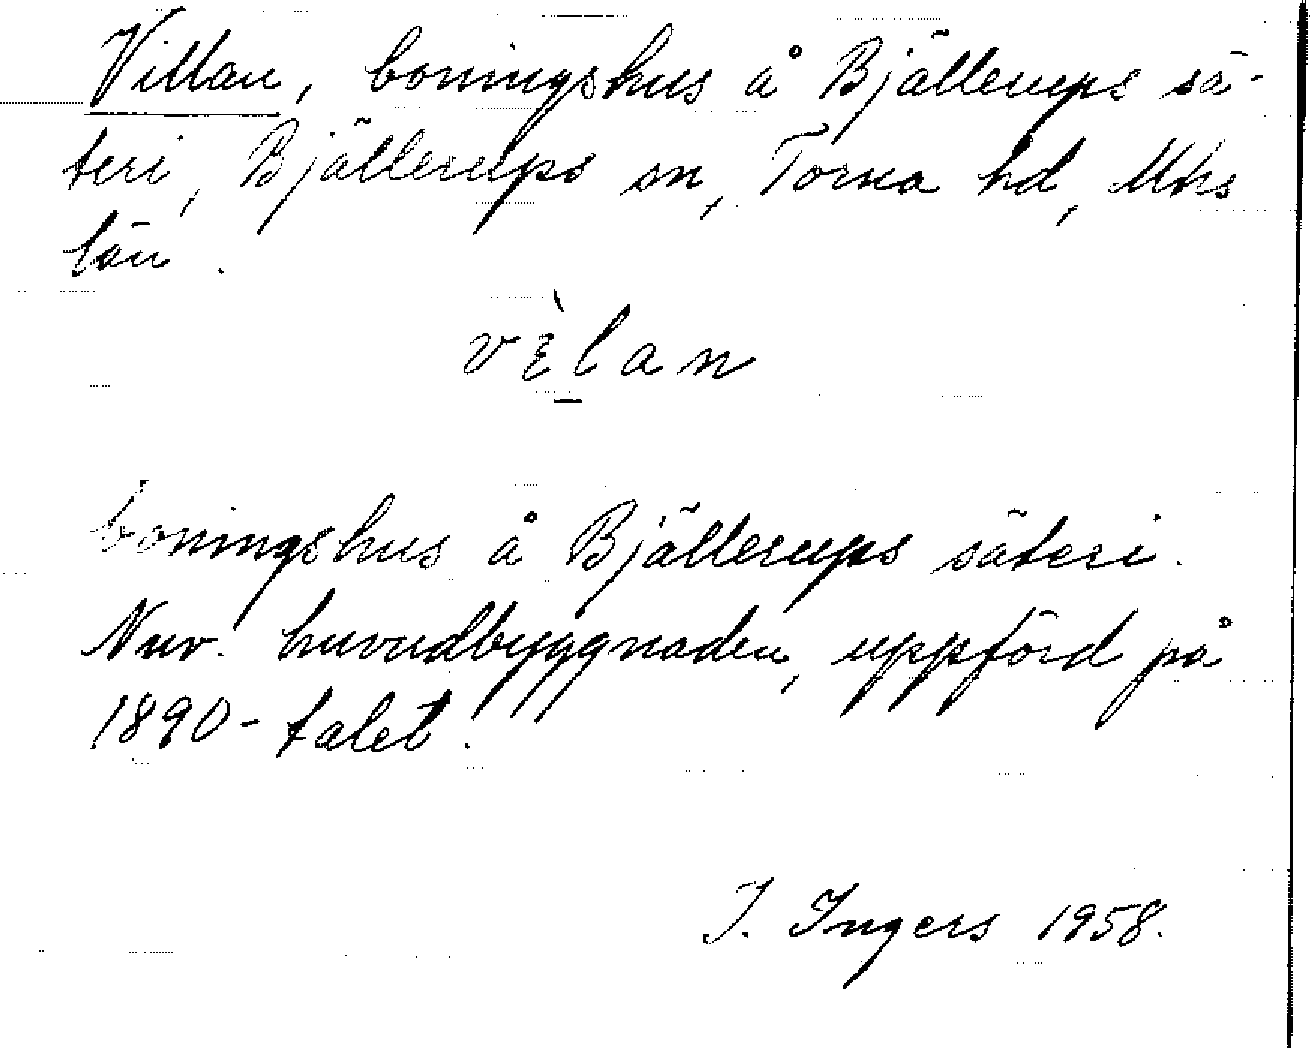 Villan, boningshus å Bjällerups sä-
teri, Bjällerups sn, Torna hd, Mhs
län.
vὲlan
boningshus å Bjällerups säteri.
Nuv. huvudbyggnaden, uppförd på
1890-talet.
I. Ingers 1958.